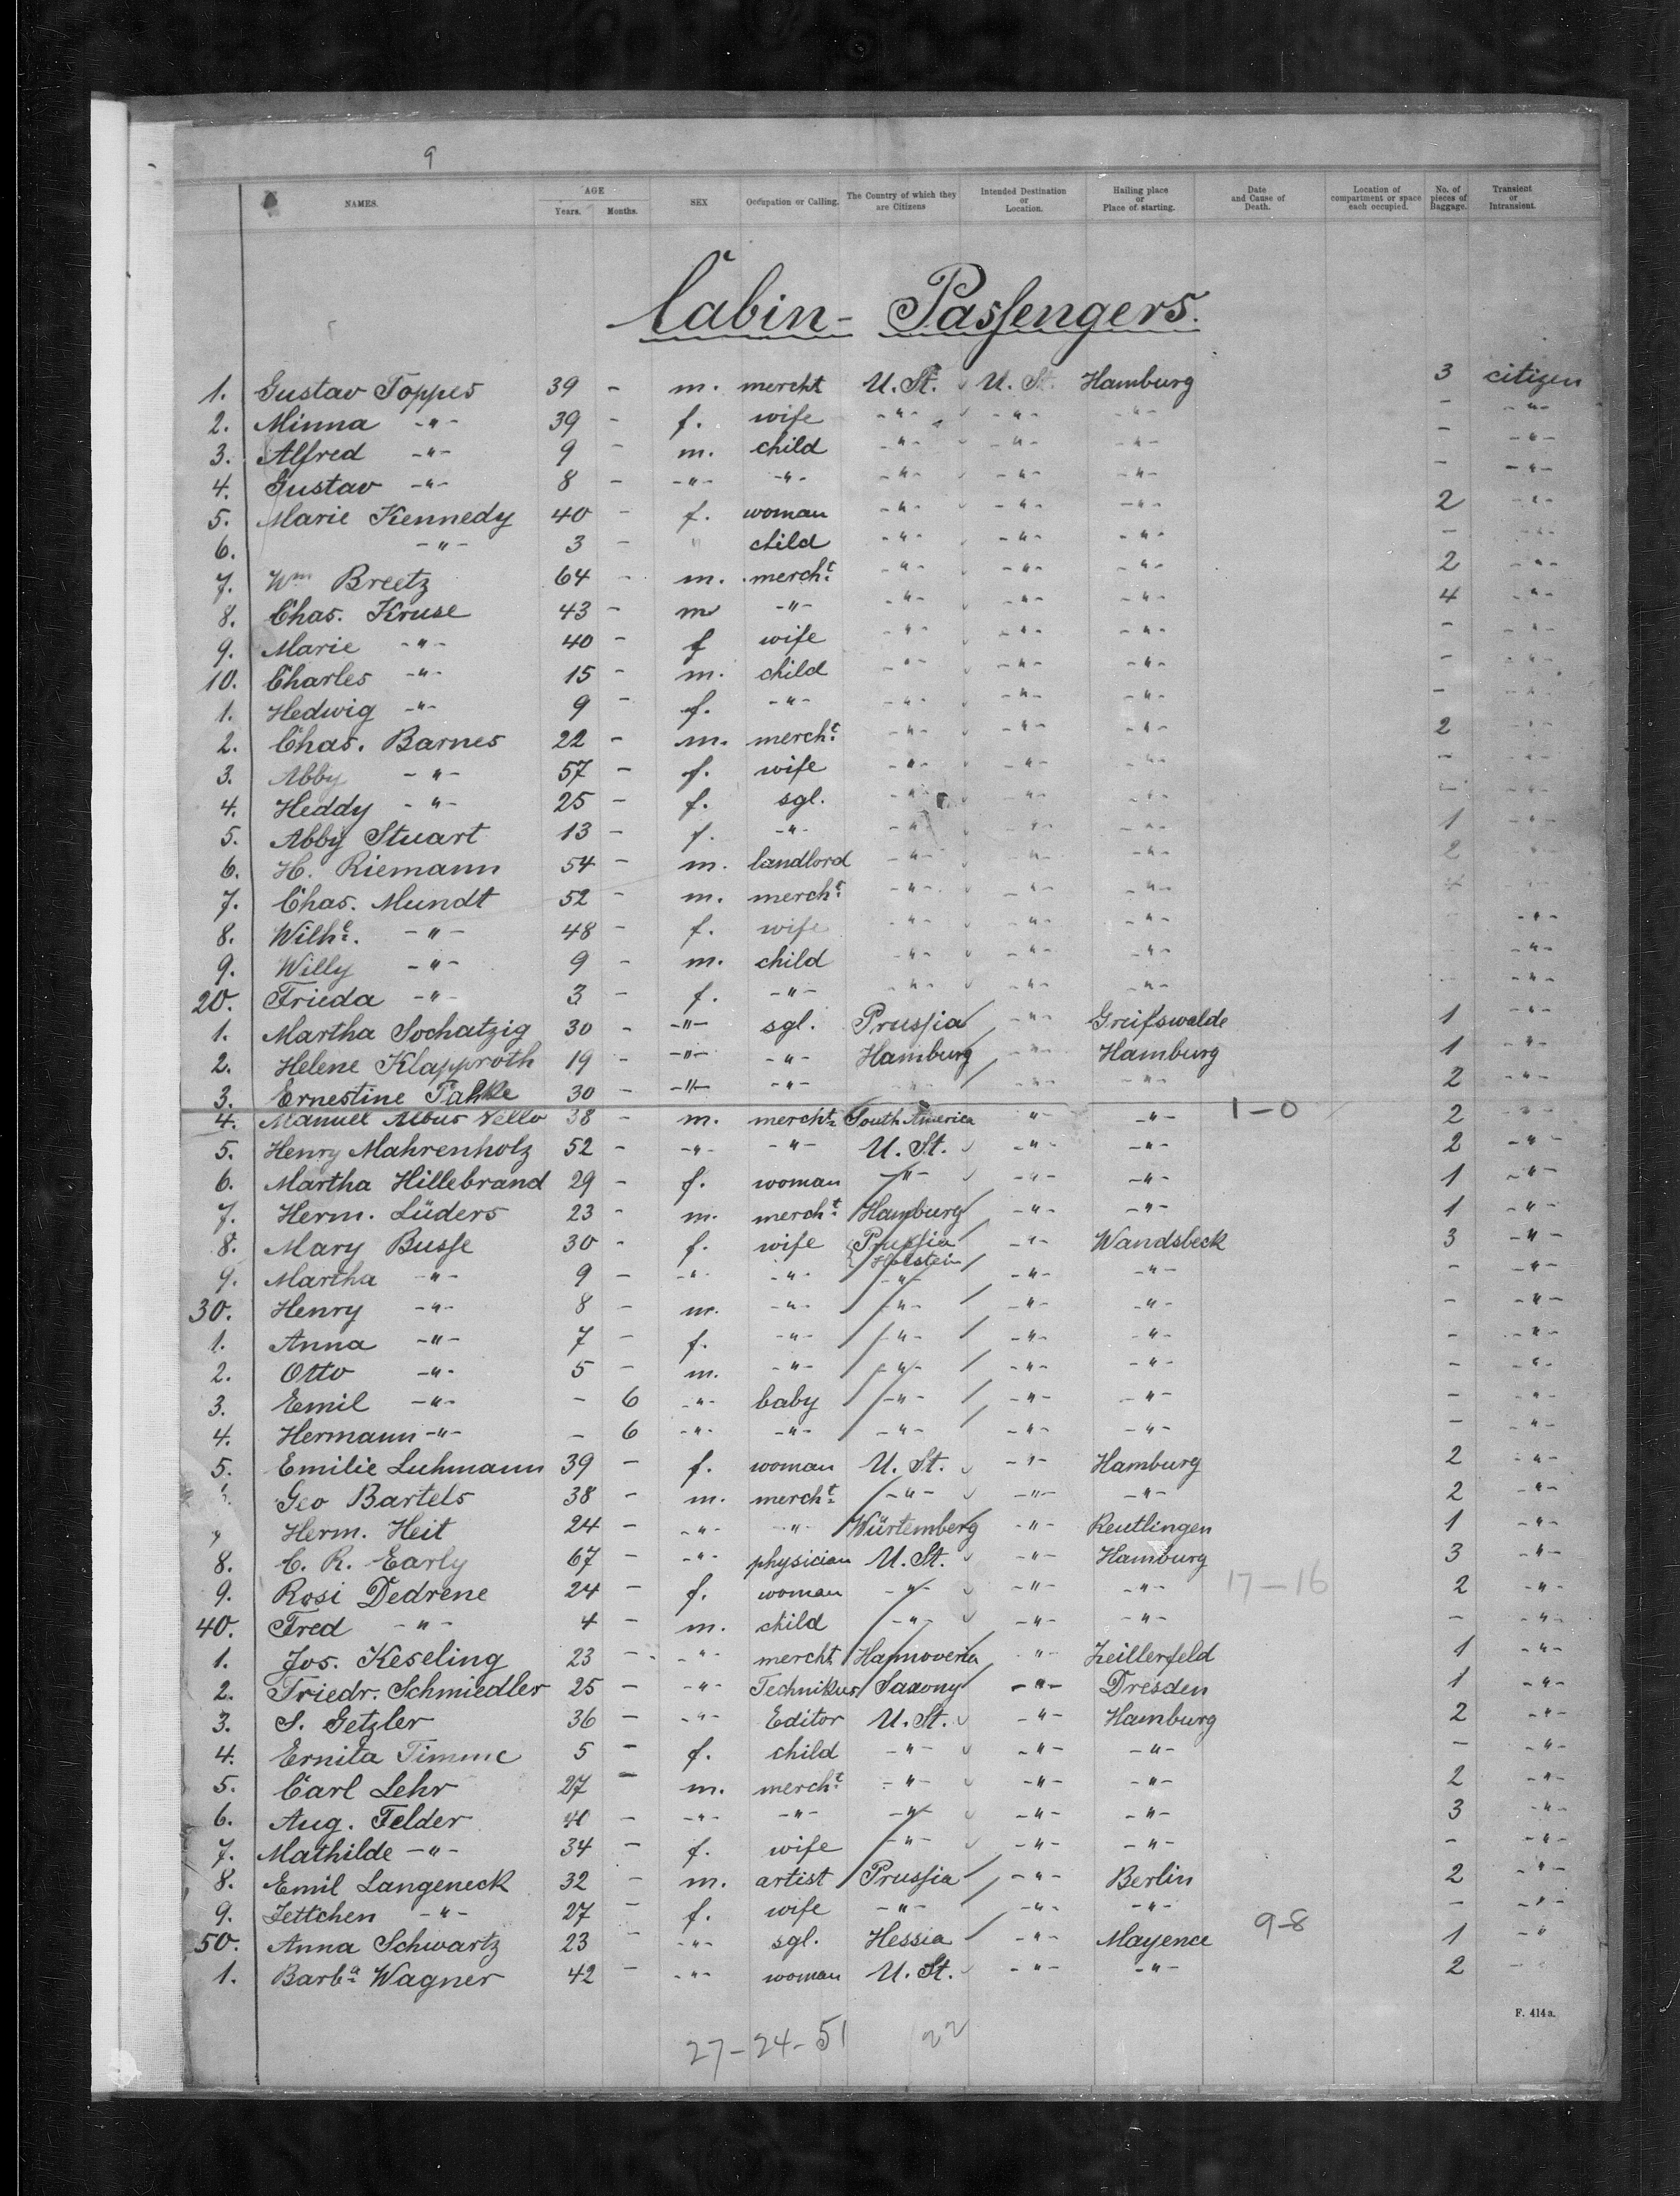 9
NAMES. AGE Years. Months. SEX Occupation or Calling. The Country of which they are Citizens Intended Destination or Location. Hailing place or Place of starting. Date and Cause of Death. Location of compartment or space each occupied. No. of pieces of Baggage. Transient or Intransient.
Cabin- Passengers.
1. Gustav Toppes 39 - m. mercht U. St. U. St. Hamburg 3 citizen
2. Minna -"- 39 - f. wife -"- -"- -"- - -"-
3. Alfred -"- 9 - m. child -"- -"- -"- - -"-
4. Gustav -"- 8 - -"- -"- -"- -"- -"- - -"-
5. Marie Kennedy 40 - f. woman -"- -"- -"- 2 -"-
6. -"- 3 - " child -"- -"- -"- - -"-
7. Wm Breetz 64 - m. mercht. -"- -"- -"- 2 -"-
8. Chas. Kruse 43 - m -"- -"- -"- -"- 4 -"-
9. Marie -"- 40 - f wife -"- -"- -"- - -"-
10. Charles -"- 15 - m. child -"- -"- -"- - -"-
1. Hedwig -"- 9 - f. -"- -"- -"- -"- - -"-
2. Chas. Barnes 22 - m. mercht. -"- -"- -"- 2 -"-
3. Abby -"- 57 - f. wife -"- -"- -"- - -"-
4. Heddy -"- 25 - f. sgl. -"- -"- -"- - -"-
5. Abby Stuart 13 - f. -"- -"- -"- -"- 1 -"-
6. H. Riemann 54 - m. landlord -"- -"- -"- 2 -"-
7. Chas. Mundt 52 - m. mercht. -"- -"- -"- 4 -"-
8. Wilhe. -"- 48 - f. wife -"- -"- -"- -"-
9. Willy -"- 9 - m. child -"- -"- -"- -"-
20. Frieda -"- 3 - f. -"- -"- -"- -"- - -"-
1. Martha Sochatzig 30 - -"- sgl. Prussia -"- Greifswalde 1 -"-
2. Helene Klapproth 19 - -"- -"- Hamburg -"- Hamburg 1 -"-
3. Ernestine 30 - -"- -"- -"- -"- -"- 2 -"-
4. Manuel 38 - m. mercht. South America " -"- 1-0 2 -"-
5. Henry Mahrenholz 52 - -"- -"- U. St. -"- -"- 2 -"-
6. Martha Hillebrand 29 - f. woman -"- -"- -"- 1 -"-
7. Herm. Lüders 23 - m. mercht. Hamburg -"- -"- 1 -"-
8. Mary Busse 30 - f. wife Prussia Holstein -"- Wandsbeck 3 -"-
9. Martha -"- 9 - -"- -"- -"- -"- -"- - -"-
30. Henry -"- 8 - m. -"- -"- -"- -"- - -"-
1. Anna -"- 7 - f. -"- -"- -"- -"- - -"-
2. Otto -"- 5 - m. -"- -"- -"- -"- - -"-
3. Emil -"- - 6 -"- baby -"- -"- -"- - -"-
4. Hermann -"- - 6 -"- -"- -"- -"- -"- - -"-
5. Emilie Luhmann 39 - f. woman U. St. -"- Hamburg 2 -"-
Geo Bartels 38 - m. mercht. -"- -"- -"- 2 -"-
Herm. Heit 24 - -"- -"- Würtemberg -"- Reutlingen 1 -"-
8. C. R. Early 67 - -"- physician U. St. -"- Hamburg 3 -"-
9. Rosi Dedrene 24 - f. woman -"- -"- -"- 17-16 2 -"-
40. Fred -"- 4 - m. child -"- -"- -"- - -"-
1. Jos. Keseling 23 - -"- mercht Hannoveria " Zeillerfeld 1 -"-
2. Friedr. Schmiedler 25 - -"- Technikus Saxony -"- Dresden 1 -"-
3. S. Getzler 36 - -"- Editor U. St. -"- Hamburg 2 -"-
4. Ernita Timme 5 - f. child -"- -"- -"- - -"-
5. Carl Lehr 27 - m. mercht. -"- -"- -"- 2 -"-
6. Aug. Felder 40 - -"- -"- -"- -"- -"- 3 -"-
7. Mathilde -"- 34 - f. wife -"- -"- -"- - -"-
8. Emil Langeneck 32 - m. artist Prussia -"- Berlin 2 -"-
9. Jettchen -"- 27 - f. wife -"- -"- -"- - -"-
50. Anna Schwartz 23 - -"- sgl. Hessia -"- Mayence 9-8 1 -"
1. Barba. Wagner 42 - -"- woman U. St. -"- -"- 2 -"-
F. 414a.
27-24-51 22